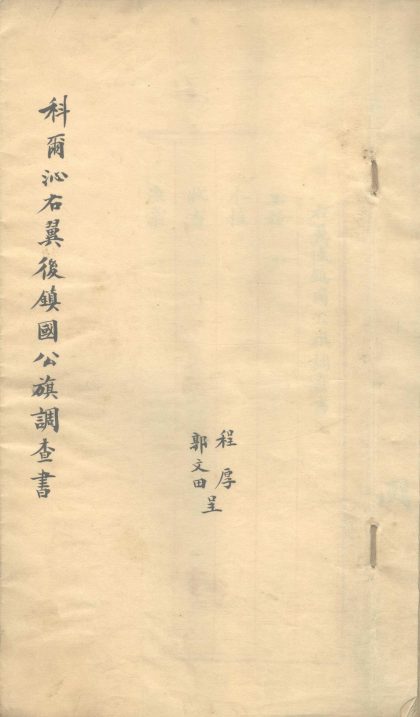 程厚
郭文田 呈
科爾沁右翼後鎮國公旗調查書